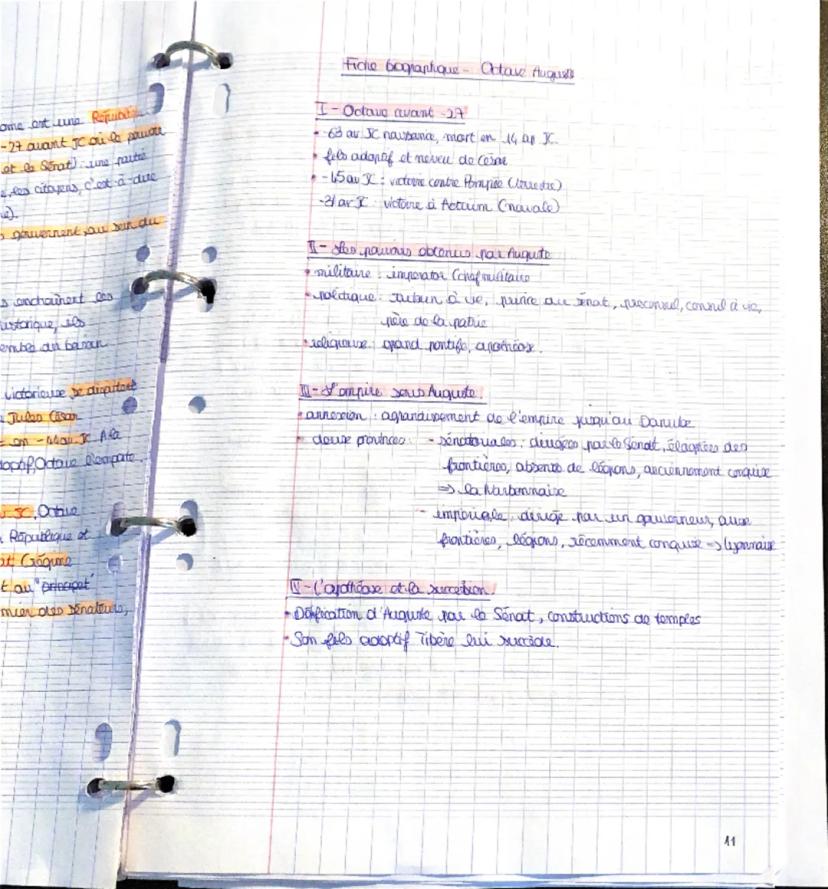 ome est une République
-27 avant JC où le pouvoir
et le Sénat) : une partie
e, les citoyens, c'est-à-dire
gouvernent, au sein du
s enchaînent les
historique, ils
victorieuse se disputent
Jules César
en -44 av JC A la
adoptif, Octave l'emporte.
JC, Octave
République et
t au "principat"
mier des sénateurs,
Fiche biographique - Octave Auguste
I - Octave avant -27
• -63 av JC naissance, mort en 14 ap JC.
• fils adoptif et neveu de César
• -45 av JC : victoire contre Pompée (terrestre)
-31 av JC : victoire à Actium (navale)
II - Les pouvoirs obtenus par Auguste
• militaire : imperator (chef militaire
• politique : tribun à vie, prince au sénat, proconsul, consul à vie,
père de la patrie
• religieuse : grand pontife, apothéose.
III - L'empire sous Auguste.
• annexion : agrandissement de l'empire jusqu'au Danube
• deux provinces : - sénatoriales : dirigées par le Sénat, éloignées des
frontières, absence de légions, anciennement conquise
=> la Narbonnaise
- impériale : dirigé par un gouverneur, aux
frontières, légions, récemment conquise => lyonnaise
IV - L'apothéose et la succession.
• Déification d'Auguste par le Sénat, constructions de temples
• Son fils adoptif Tibère lui succède.
11